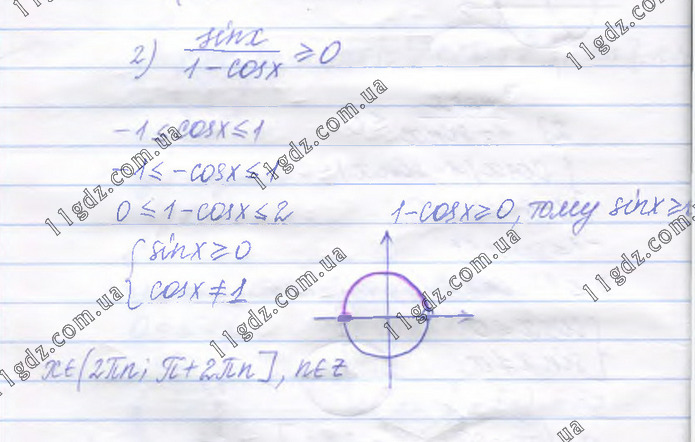 2) sinx / 1-cosx ≥0
-1≤cosx≤1
-1≤-cosx≤1
0≤1-cosx≤2
1-cosx≥0, тому sinx≥
{ sinx≥0
cosx≠1
x∈(2πn; π+2πn], n∈z
11gdz.com.ua
11gdz.com.ua
11gdz.com.ua
11gdz.com.ua
11gdz.com.ua
11gdz.com.ua